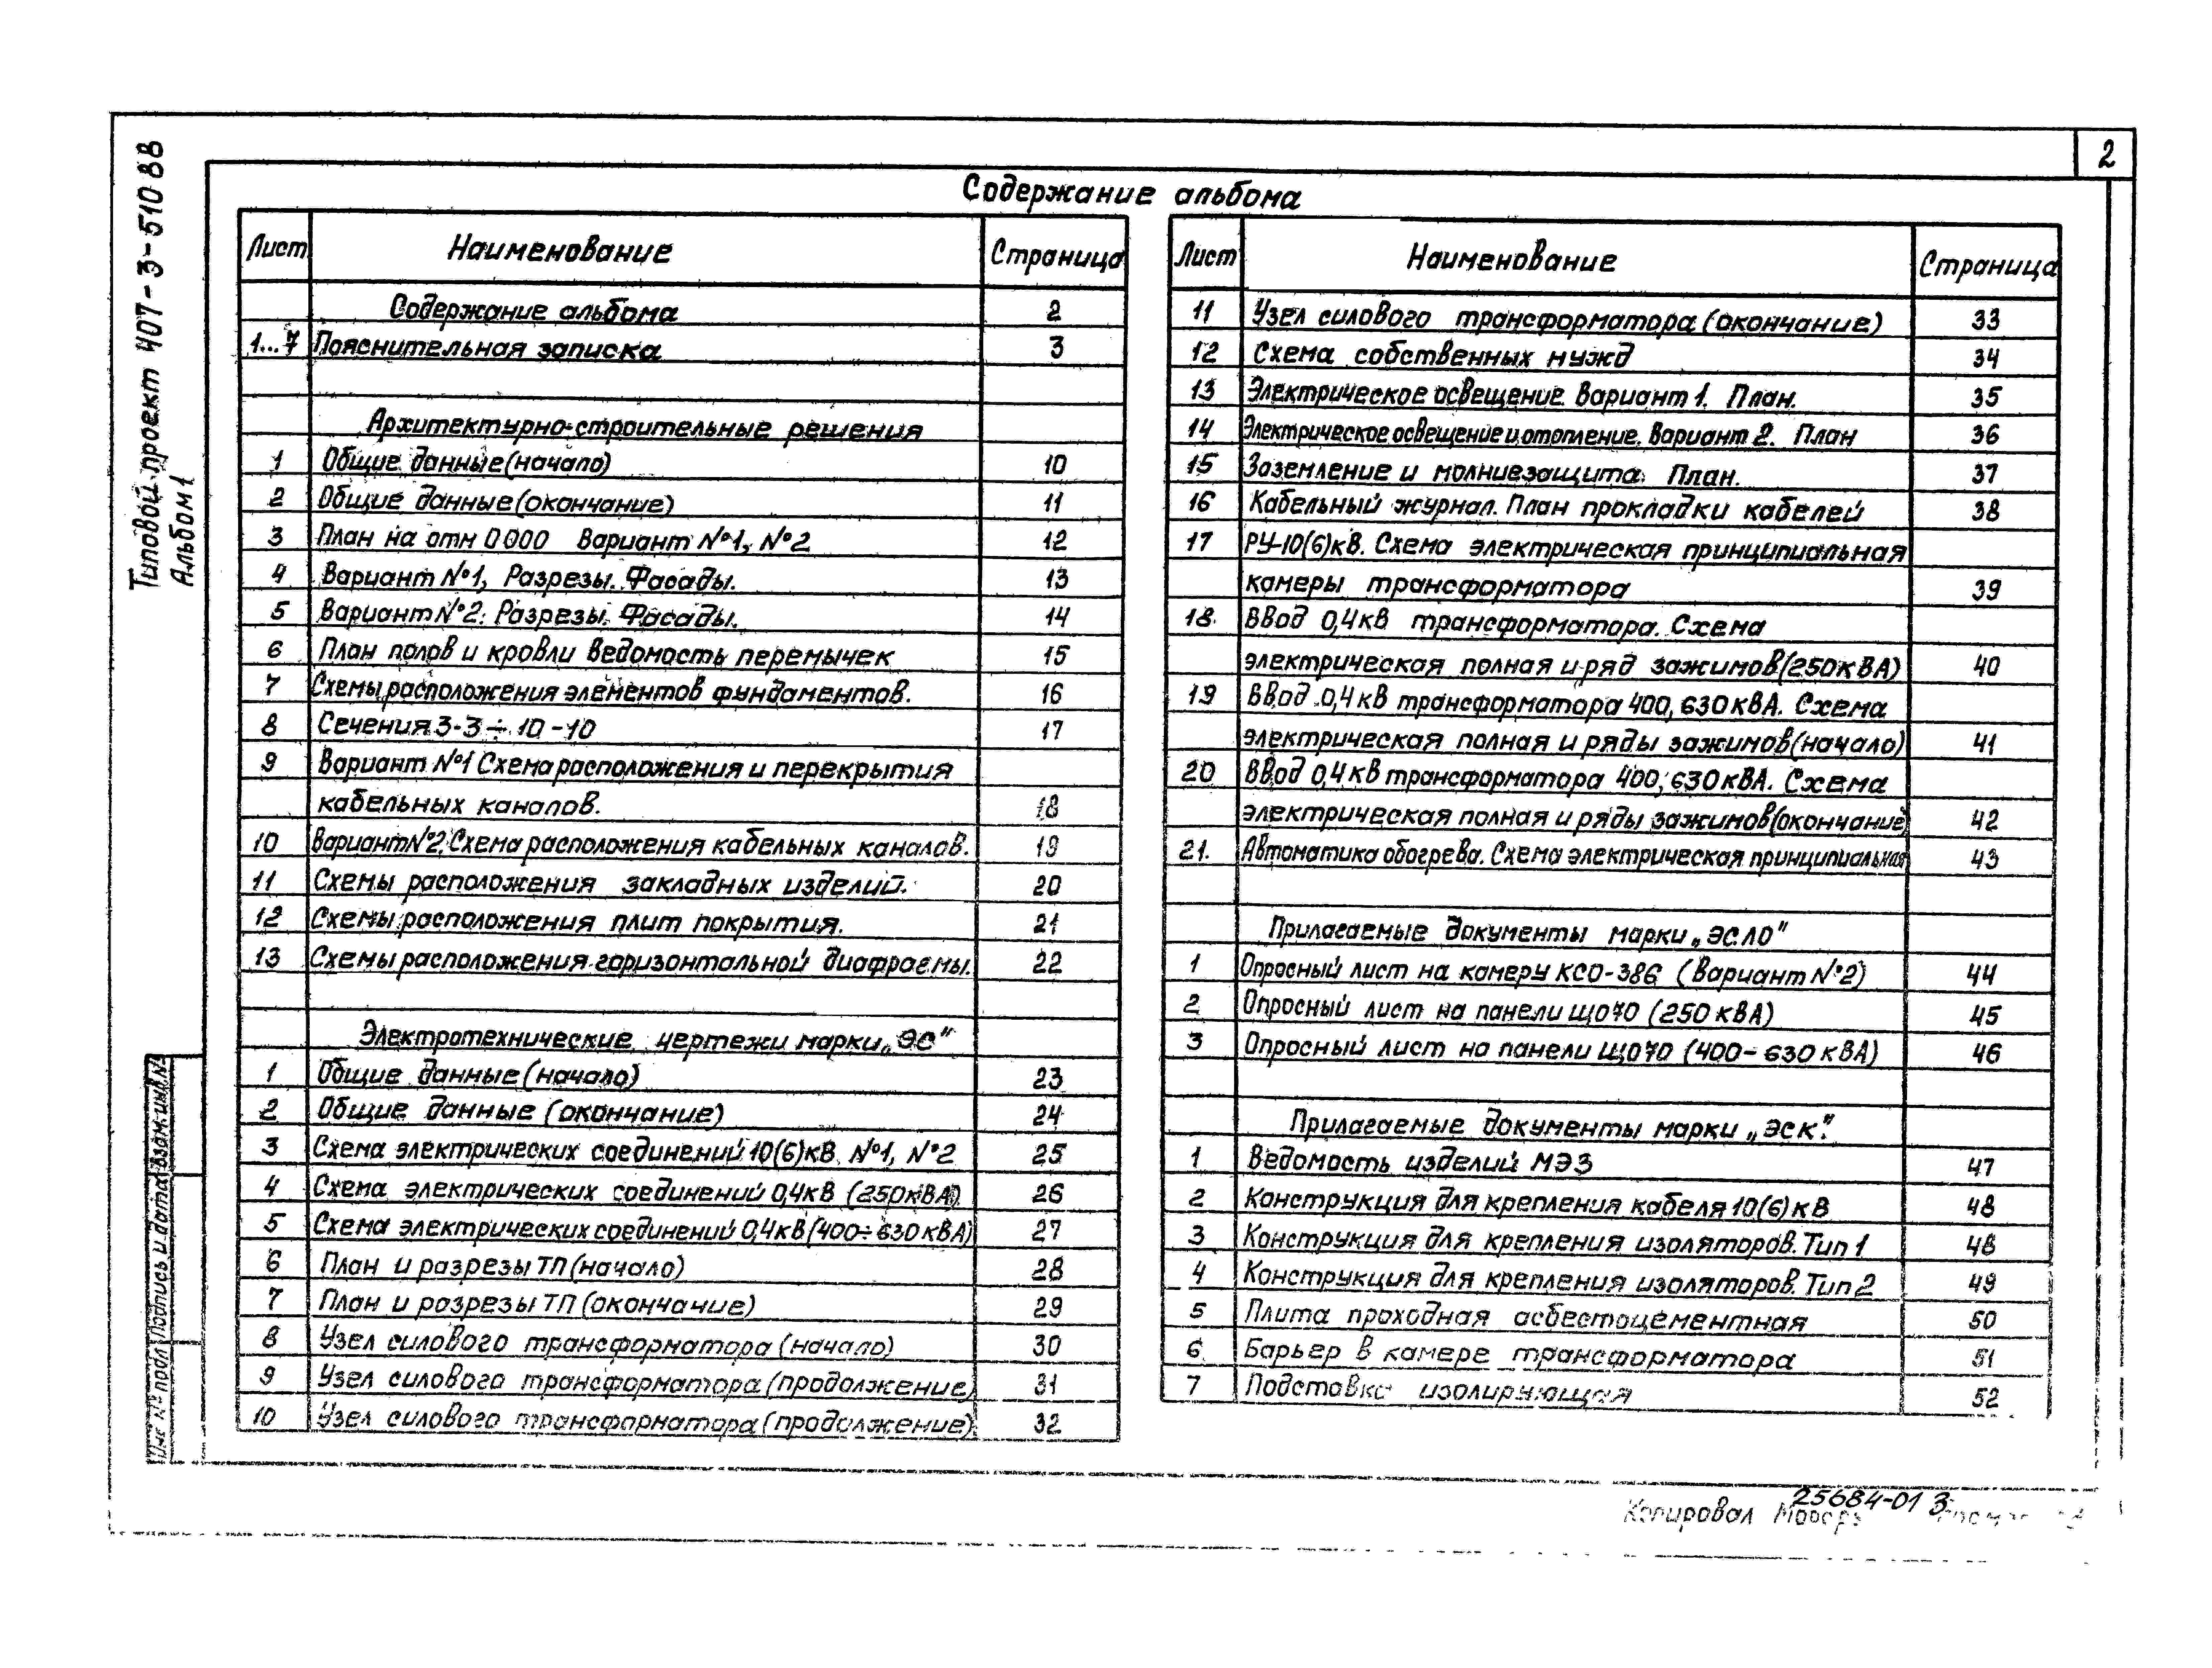 2
Типовой проект 407-3-510 88
Альбом 1
Содержание альбома
Лист Наименование Страница
Содержание альбома 2
1...7 Пояснительная записка 3
Архитектурно-строительные решения
1 Общие данные (начало) 10
2 Общие данные (окончание) 11
3 План на отм 0 000 Вариант №1, №2 12
4 Вариант №1, Разрезы. Фасады. 13
5 Вариант №2. Разрезы. Фасады. 14
6 План полов и кровли Ведомость перемычек 15
7 Схемы расположения элементов фундаментов. 16
8 Сечения 3-3 ÷ 10-10 17
9 Вариант №1 Схема расположения и перекрытия
кабельных каналов. 18
10 Вариант №2. Схема расположения кабельных каналов. 19
11 Схемы расположения закладных изделий. 20
12 Схемы расположения плит покрытия. 21
13 Схемы расположения горизонтальной диафрагмы. 22
Электротехнические чертежи марки „ЭС"
1 Общие данные (начало) 23
2 Общие данные (окончание) 24
3 Схема электрических соединений 10(6)кВ №1, №2 25
4 Схема электрических соединений 0,4кВ (250кВА) 26
5 Схема электрических соединений 0,4кВ (400÷630кВА) 27
6 План и разрезы ТП (начало) 28
7 План и разрезы ТП (окончание) 29
8 Узел силового трансформатора (начало) 30
9 Узел силового трансформатора (продолжение) 31
10 Узел силового трансформатора (продолжение) 32
Лист Наименование Страница
11 Узел силового трансформатора (окончание) 33
12 Схема собственных нужд 34
13 Электрическое освещение Вариант 1. План. 35
14 Электрическое освещение и отопление. Вариант 2. План 36
15 Заземление и молниезащита. План. 37
16 Кабельный журнал. План прокладки кабелей 38
17 РУ-10(6)кВ. Схема электрическая принципиальная
камеры трансформатора 39
18. Ввод 0,4кВ трансформатора. Схема
электрическая полная и ряд зажимов (250кВА) 40
19 Ввод 0,4кВ трансформатора 400, 630кВА. Схема
электрическая полная и ряды зажимов (начало) 41
20 Ввод 0,4кВ трансформатора 400, 630кВА. Схема
электрическая полная и ряды зажимов (окончание) 42
21. Автоматика обогрева. Схема электрическая принципиальная 43
Прилагаемые документы марки „ЭСЛО"
1 Опросный лист на камеру КСО-386 (Вариант №2) 44
2 Опросный лист на панели ЩО70 (250кВА) 45
3 Опросный лист на панели ЩО70 (400-630кВА) 46
Прилагаемые документы марки „ЭСК".
1 Ведомость изделий МЭЗ 47
2 Конструкция для крепления кабеля 10(6)кВ 48
3 Конструкция для крепления изоляторов. Тип 1 48
4 Конструкция для крепления изоляторов. Тип 2 49
5 Плита проходная асбестоцементная 50
6 Барьер в камере трансформатора 51
7 Подставка изолирующая 52
Инв № подл Подпись и дата Взам. инв. №
25684-01 3
Копировал